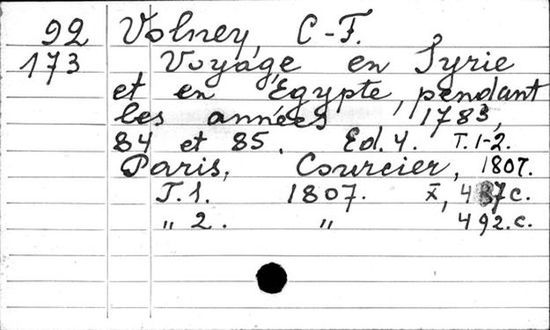 92 Volney, C-F.
173 Voyage en Syrie
et en Égypte, pendant
les années 1783,
84 et 85. Ed. 4. T. 1-2.
Paris, Courcier, 1807.
T. 1. 1807. X, 437 c.
„ 2. „ 492. c.